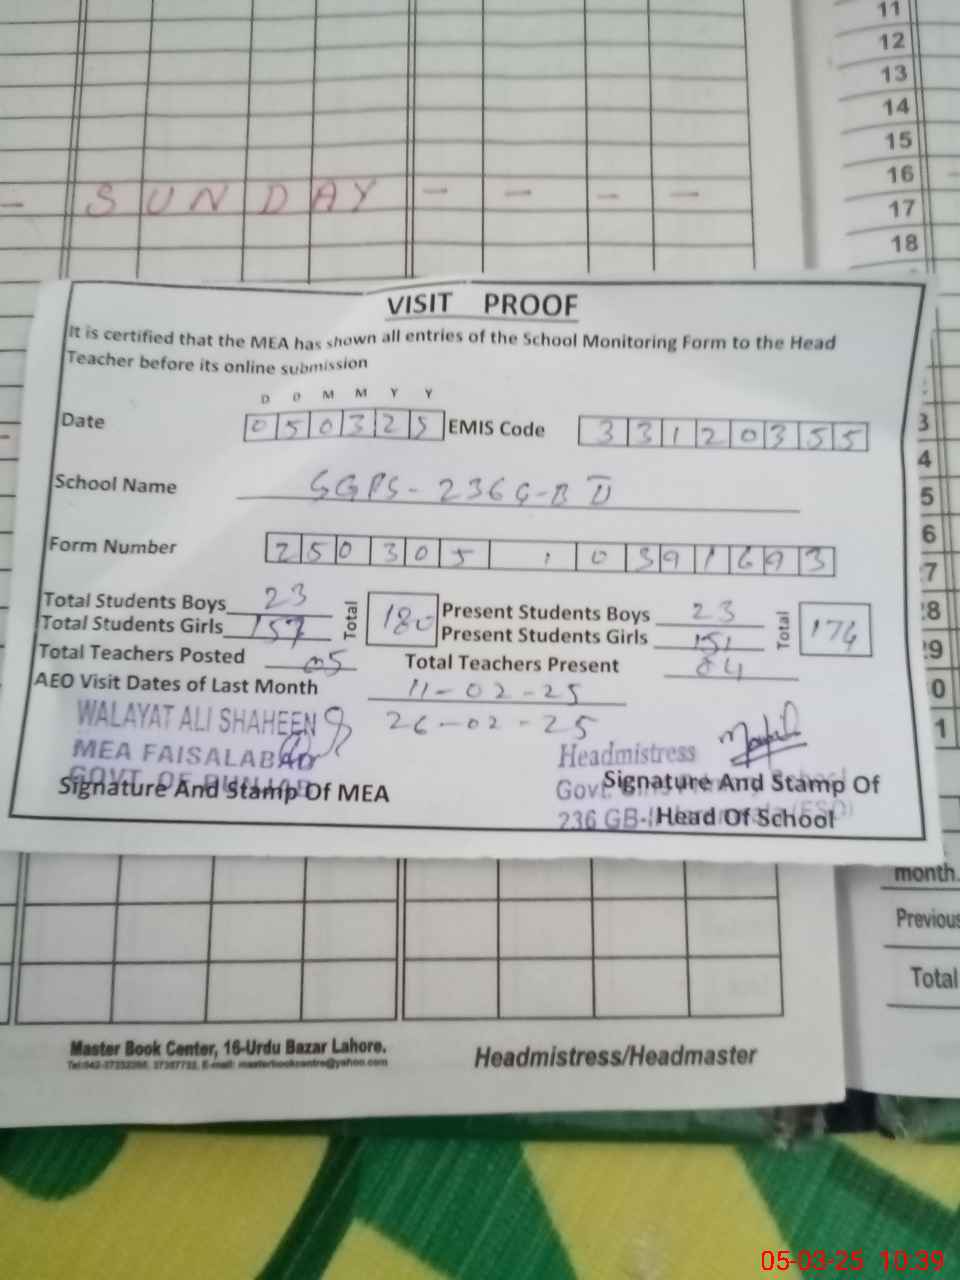 11
12
13
14
15
16
17
18
- SUNDAY - - - -
VISIT PROOF
It is certified that the MEA has shown all entries of the School Monitoring Form to the Head
Teacher before its online submission
D D M M Y Y
Date 050325 EMIS Code 33120355
School Name SGPS-236 G-B II
Form Number 250305 , 0391693
Total Students Boys 23 Total 180 Present Students Boys 23 Total 174
Total Students Girls 157 Present Students Girls 151
Total Teachers Posted 05 Total Teachers Present 04
AEO Visit Dates of Last Month 11-02-25
26-02-25
WALAYAT ALI SHAHEEN
MEA FAISALABAD
GOVT. OF PUNJAB
Signature And Stamp Of MEA
Headmistress
Govt. School
Signature And Stamp Of
236 GB-
Head Of School
3
4
5
6
7
8
9
0
1
month.
Previous
Total
Master Book Center, 16-Urdu Bazar Lahore.
Headmistress/Headmaster
05-03-25 10:39